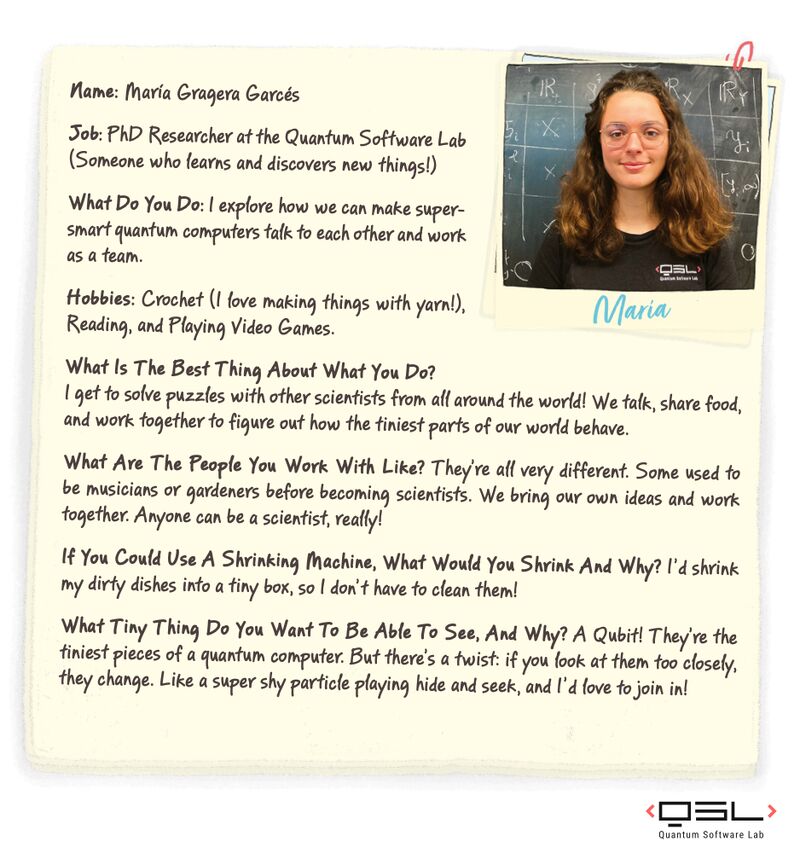 Name: María Gragera Garcés
Job: PhD Researcher at the Quantum Software Lab
(Someone who learns and discovers new things!)
What Do You Do: I explore how we can make super-
smart quantum computers talk to each other and work
as a team.
Hobbies: Crochet (I love making things with yarn!),
Reading, and Playing Video Games.
IR
R
X
IR
Y
X
y i
QSL
Quantum Software Lab
María
What Is The Best Thing About What You Do?
I get to solve puzzles with other scientists from all around the world! We talk, share food,
and work together to figure out how the tiniest parts of our world behave.
What Are The People You Work With Like? They're all very different. Some used to
be musicians or gardeners before becoming scientists. We bring our own ideas and work
together. Anyone can be a scientist, really!
If You Could Use A Shrinking Machine, What Would You Shrink And Why? I'd shrink
my dirty dishes into a tiny box, so I don't have to clean them!
What Tiny Thing Do You Want To Be Able To See, And Why? A Qubit! They're the
tiniest pieces of a quantum computer. But there's a twist: if you look at them too closely,
they change. Like a super shy particle playing hide and seek, and I'd love to join in!
QSL
Quantum Software Lab